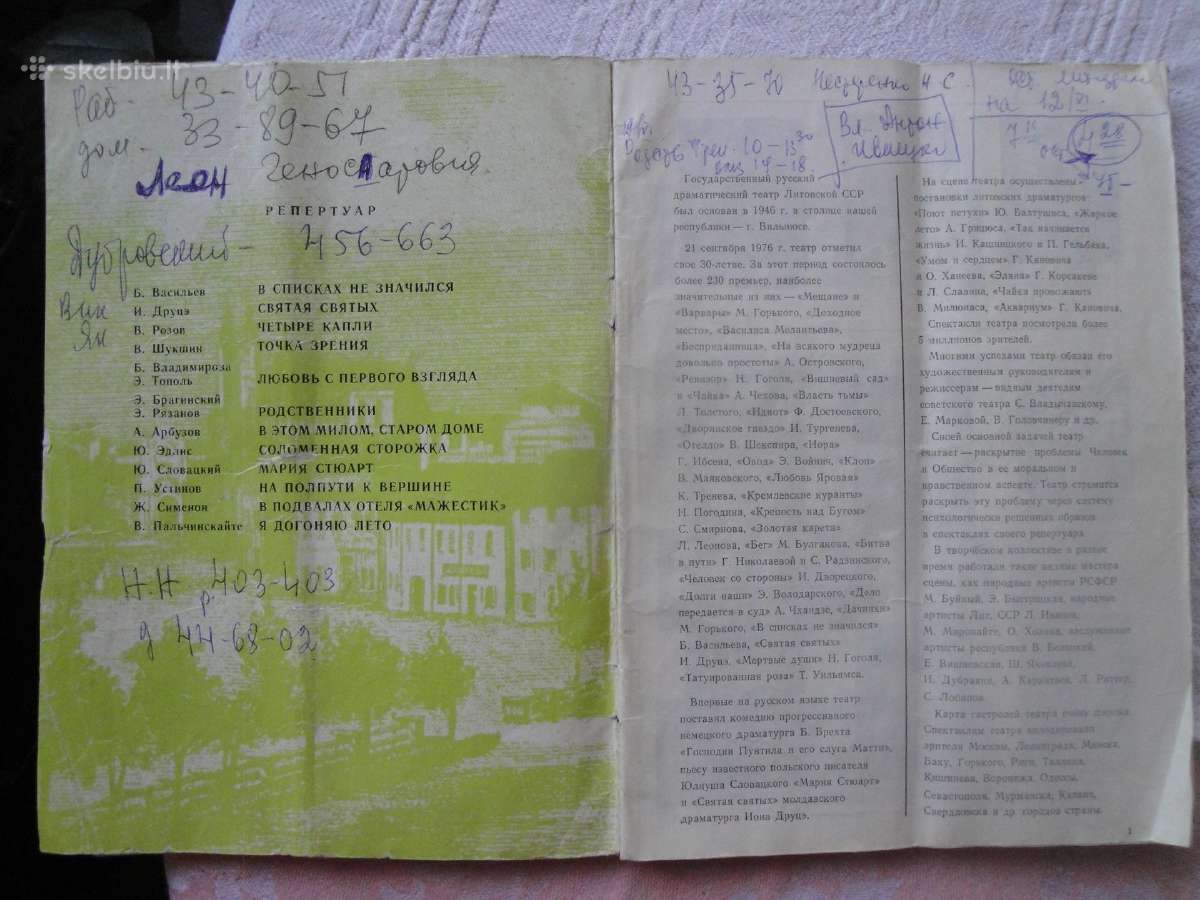 skelbiu.lt
Раб. 43-40-51
дом. 33-89-67
Леон
РЕПЕРТУАР
Дубровский - 456-663
Вик
Як
Б. Васильев В СПИСКАХ НЕ ЗНАЧИЛСЯ
И. Друцэ СВЯТАЯ СВЯТЫХ
В. Розов ЧЕТЫРЕ КАПЛИ
В. Шукшин ТОЧКА ЗРЕНИЯ
Б. Владимирова
Э. Тополь ЛЮБОВЬ С ПЕРВОГО ВЗГЛЯДА
Э. Брагинский
Э. Рязанов РОДСТВЕННИКИ
А. Арбузов В ЭТОМ МИЛОМ, СТАРОМ ДОМЕ
Ю. Эдлис СОЛОМЕННАЯ СТОРОЖКА
Ю. Словацкий МАРИЯ СТЮАРТ
П. Устинов НА ПОЛПУТИ К ВЕРШИНЕ
Ж. Сименон В ПОДВАЛАХ ОТЕЛЯ «МАЖЕСТИК»
В. Пальчинскайте Я ДОГОНЯЮ ЛЕТО
Н.Н р. 403-403
д 44-68-02
43-35-70 С.
на 12/VI.
Вл. Антон
10-13 30
14-18.
28
Государственный русский
драматический театр Литовской ССР
был основан в 1946 г. в столице нашей
республики — г. Вильнюсе.
21 сентября 1976 г. театр отметил
свое 30-летие. За этот период состоялось
более 230 премьер, наиболее
значительные из них — «Мещане» и
«Варвары» М. Горького, «Доходное
место», «Василиса Мелентьева»,
«Бесприданница», «На всякого мудреца
довольно простоты» А. Островского,
«Ревизор» Н. Гоголя, «Вишневый сад»
и «Чайка» А. Чехова, «Власть тьмы»
Л. Толстого, «Идиот» Ф. Достоевского,
«Дворянское гнездо» И. Тургенева,
«Отелло» В. Шекспира, «Нора»
Г. Ибсена, «Овод» Э. Войнич, «Клоп»
В. Маяковского, «Любовь Яровая»
К. Тренева, «Кремлевские куранты»
Н. Погодина, «Крепость над Бугом»
С. Смирнова, «Золотая карета»
Л. Леонова, «Бег» М. Булгакова, «Битва
в пути» Г. Николаевой и С. Радзинского,
«Человек со стороны» И. Дворецкого,
«Долги наши» Э. Володарского, «Дело
передается в суд» А. Чхаидзе, «Дачники»
М. Горького, «В списках не значился»
Б. Васильева, «Святая святых»
И. Друцэ, «Мертвые души» Н. Гоголя,
«Татуированная роза» Т. Уильямса.
Впервые на русском языке театр
поставил комедию прогрессивного
немецкого драматурга Б. Брехта
«Господин Пунтила и его слуга Матти»,
пьесу известного польского писателя
Юлиуша Словацкого «Мария Стюарт»
и «Святая святых» молдавского
драматурга Иона Друцэ.
На сцене театра осуществлены
постановки литовских драматургов:
«Поют петухи» Ю. Балтушиса, «Жаркое
лето» А. Грицюса, «Так начинается
жизнь» И. Кашницкого и П. Гельбака,
«Умом и сердцем» Г. Кановича
и О. Ханеева, «Эляна» Г. Корсакене
и Л. Славина, «Чайки провожают»
В. Милюнаса, «Аквариум» Г. Кановича.
Спектакли театра посмотрели более
5 миллионов зрителей.
Многими успехами театр обязан его
художественным руководителям и
режиссерам — видным деятелям
советского театра С. Владычанскому,
Е. Марковой, В. Головчинеру и др.
Своей основной задачей театр
считает — раскрытие проблемы Человек
и Общество в ее моральном и
нравственном аспекте. Театр стремится
раскрыть эту проблему через систему
психологически решенных образов
в спектаклях своего репертуара.
В творческом коллективе в разное
время работали такие видные мастера
сцены, как народные артисты РСФСР
М. Буйный, Э. Быстрицкая, народные
артисты Лит. ССР Л. Иванов,
М. Миронайте, О. Холина, заслуженные
артисты республики В. Белявский,
Е. Вишневская, Ш. Яковлева,
И. Дубравин, А. Каратаев, Л. Риттер,
С. Лопатов.
Карта гастролей театра очень широка.
Спектаклям театра аплодировали
зрители Москвы, Ленинграда, Минска,
Баку, Горького, Риги, Таллина,
Кишинева, Воронежа, Одессы,
Севастополя, Мурманска, Казани,
Свердловска и др. городов страны.
1